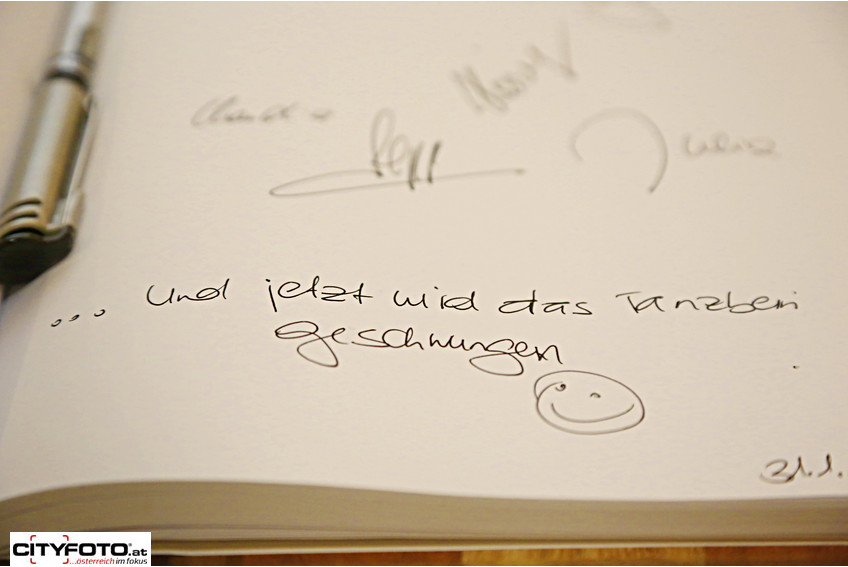 Sepp
... und jetzt wird das Tanzbein
geschwungen
31.1.
CITYFOTO.at
...österreich im fokus